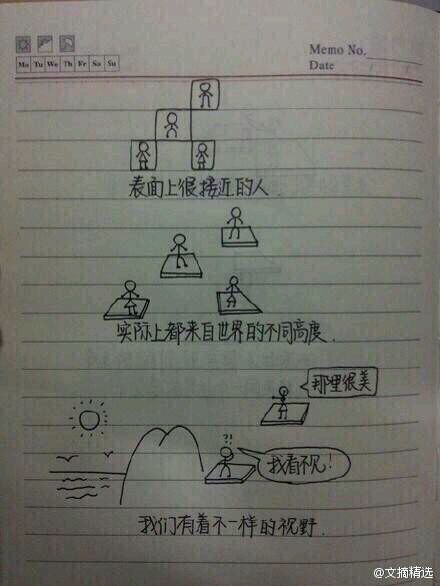 Memo No.
Mo Tu We Th Fr Sa Su
Date
表面上很接近的人.
实际上都来自世界的不同高度.
那里很美
?!
我看不见!
我们有着不一样的视野.
@文摘精选